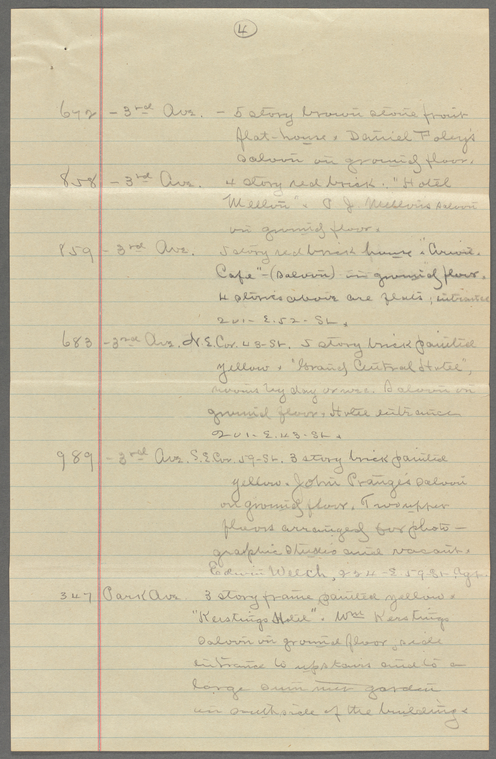 4
672 - 3rd Ave. - 5 story brown stone front
flat-house. Daniel Foley's
saloon on ground floor.
858 - 3rd Ave. 4 story red brick. "Hotel
Mellon". P. J. Mellon's saloon
on ground floor.
859 - 3rd Ave. 5 story red brick house.
Cafe" - (saloon) - on ground floor.
4 stories above are flats, entrance
201 - E. 52 - St.
683 - 3rd Ave. N.E. Cor. 43 - St. 5 story brick painted
yellow. "Grand Central Hotel",
rooms by day or wk. Saloon on
ground floor. Hotel entrance
201 - E. 43 - St.
989 - 3rd Ave. S.E. Cor. 59 - St. 3 story brick painted
yellow. John Prange's saloon
on ground floor. Two upper
floors arranged for photo-
graphic studio and vacant.
Welch, 234 - E. 59 - St. Agt.
347 Park Ave. 3 story frame painted yellow.
"Kerstings Hotel". Wm Kerstings
saloon on ground floor, side
entrance to upstairs and to a
large summer garden
on south side of the building.